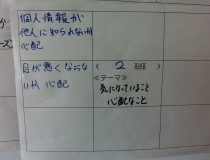 個人情報が
他人に知られないか
心配
目が悪くならな
いか心配
2 班
≪テーマ≫
気になっていること
心配なこと